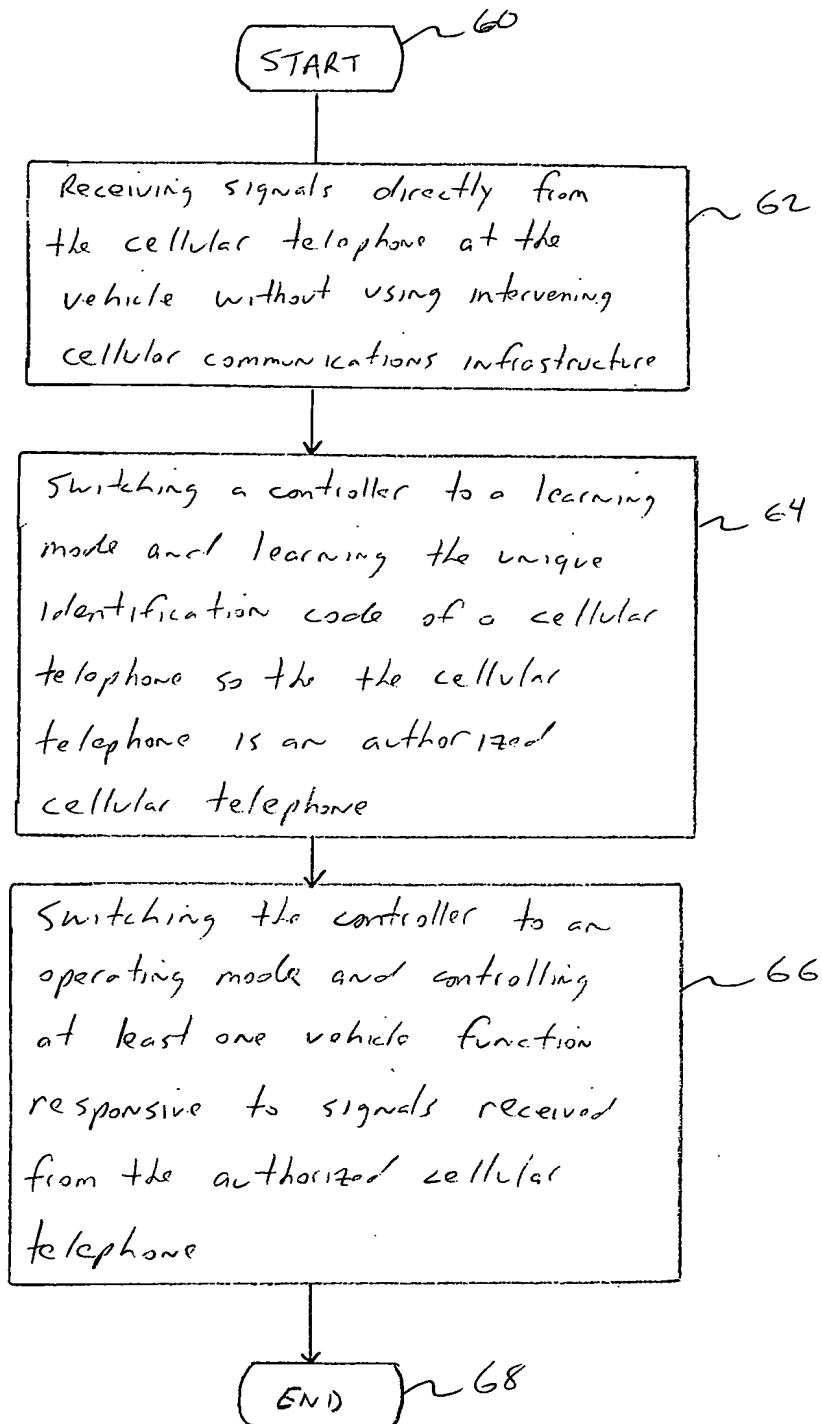 START
60
Receiving signals directly from
the cellular telephone at the
vehicle without using intervening
cellular communications infrastructure
62
Switching a controller to a learning
mode and learning the unique
identification code of a cellular
telephone so the the cellular
telephone is an authorized
cellular telephone
64
Switching the controller to an
operating mode and controlling
at least one vehicle function
responsive to signals received
from the authorized cellular
telephone
66
END
68